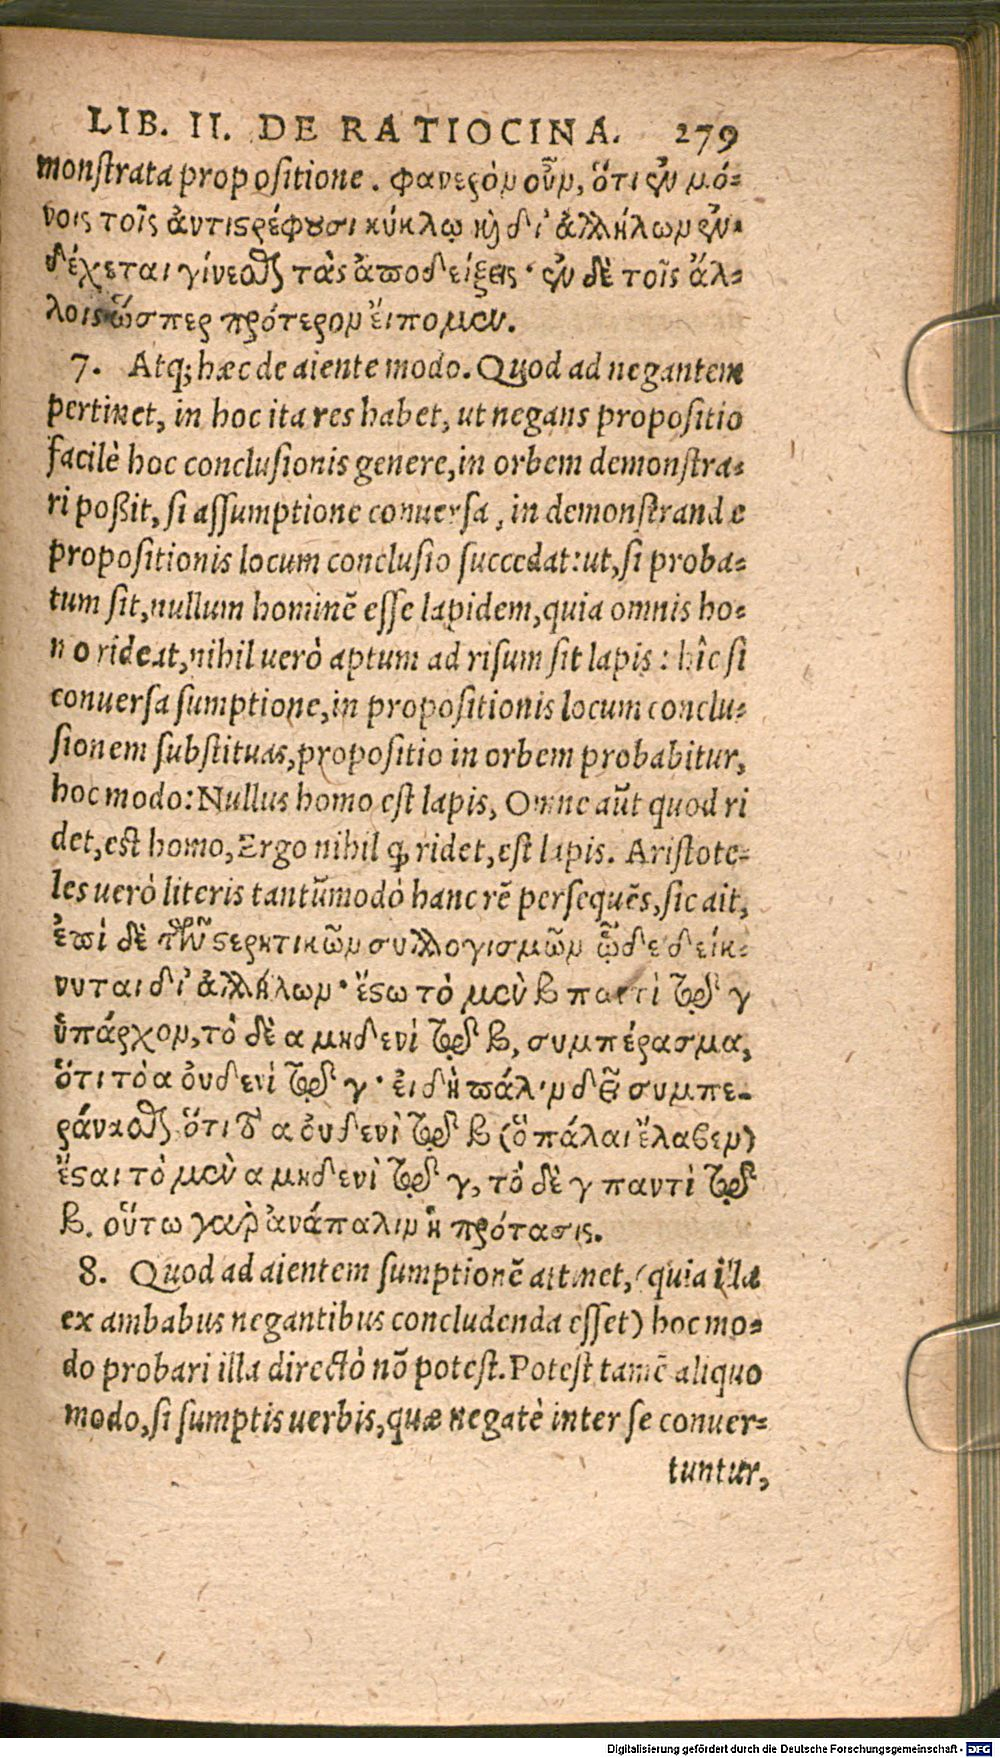 LIB. II. DE RATIOCINA. 279
monſtrata propoſitione. φανερὸν οὖν, ὅτι ἐν μό-
νοις τοῖς ἀντιϛρέφουσι κύκλῳ καὶ δι' ἀλλήλων ἐν-
δέχεται γίνεσθαι τὰς ἀποδείξεις· ἐν δὲ τοῖς ἄλ-
λοις ὥσπερ πρότερον ἔιπομεν.
7. Atq; hæc de aiente modo. Quod ad negantem
pertinet, in hoc ita res habet, ut negans propoſitio
facilè hoc concluſionis genere, in orbem demonſtra-
ri poßit, ſi aſſumptione conuerſa, in demonſtrandæ
propoſitionis locum concluſio ſuccedat: ut, ſi proba-
tum ſit, nullum hominē eſſe lapidem, quia omnis ho-
mo rideat, nihil uerò aptum ad riſum ſit lapis: hîc ſi
conuerſa ſumptione, in propoſitionis locum conclu-
ſionem ſubſtituas, propoſitio in orbem probabitur,
hoc modo: Nullus homo eſt lapis, Omne aūt quod ri
det, eſt homo, Ergo nihil ꝙ ridet, eſt lapis. Ariſtote-
les uerò literis tantūmodò hanc rē perſequēs, ſic ait,
ἐπὶ δὲ τῶν ϛερητικῶν συλλογισμῶν ὧδε δείκ-
νυται δι' ἀλλήλων· ἔϛω τὸ μὲν β παντὶ τῷ γ
ὑπάρχον, τὸ δὲ α μηδενὶ τῷ β, συμπέρασμα,
ὅτι τὸ α οὐδενὶ τῷ γ· ἐι δὴ πάλιν δεῖ συμπε-
ράνασθαι ὅτι τὸ α οὐδενὶ τῷ β (ὃ πάλαι ἔλαβεν)
ἔϛαι τὸ μὲν α μηδενὶ τῷ γ, τὸ δὲ γ παντὶ τῷ
β. οὕτω γαρ ἀνάπαλιν ἡ πρότασις.
8. Quod ad aientem ſumptionē attinet, (quia illa
ex ambabus negantibus concludenda eſſet) hoc mo-
do probari illa directò nō poteſt. Poteſt tamē aliquo
modo, ſi ſumptis uerbis, quæ negatè inter ſe conuer-
tuntur,
Digitalisierung gefördert durch die Deutsche Forschungsgemeinschaft - DFG